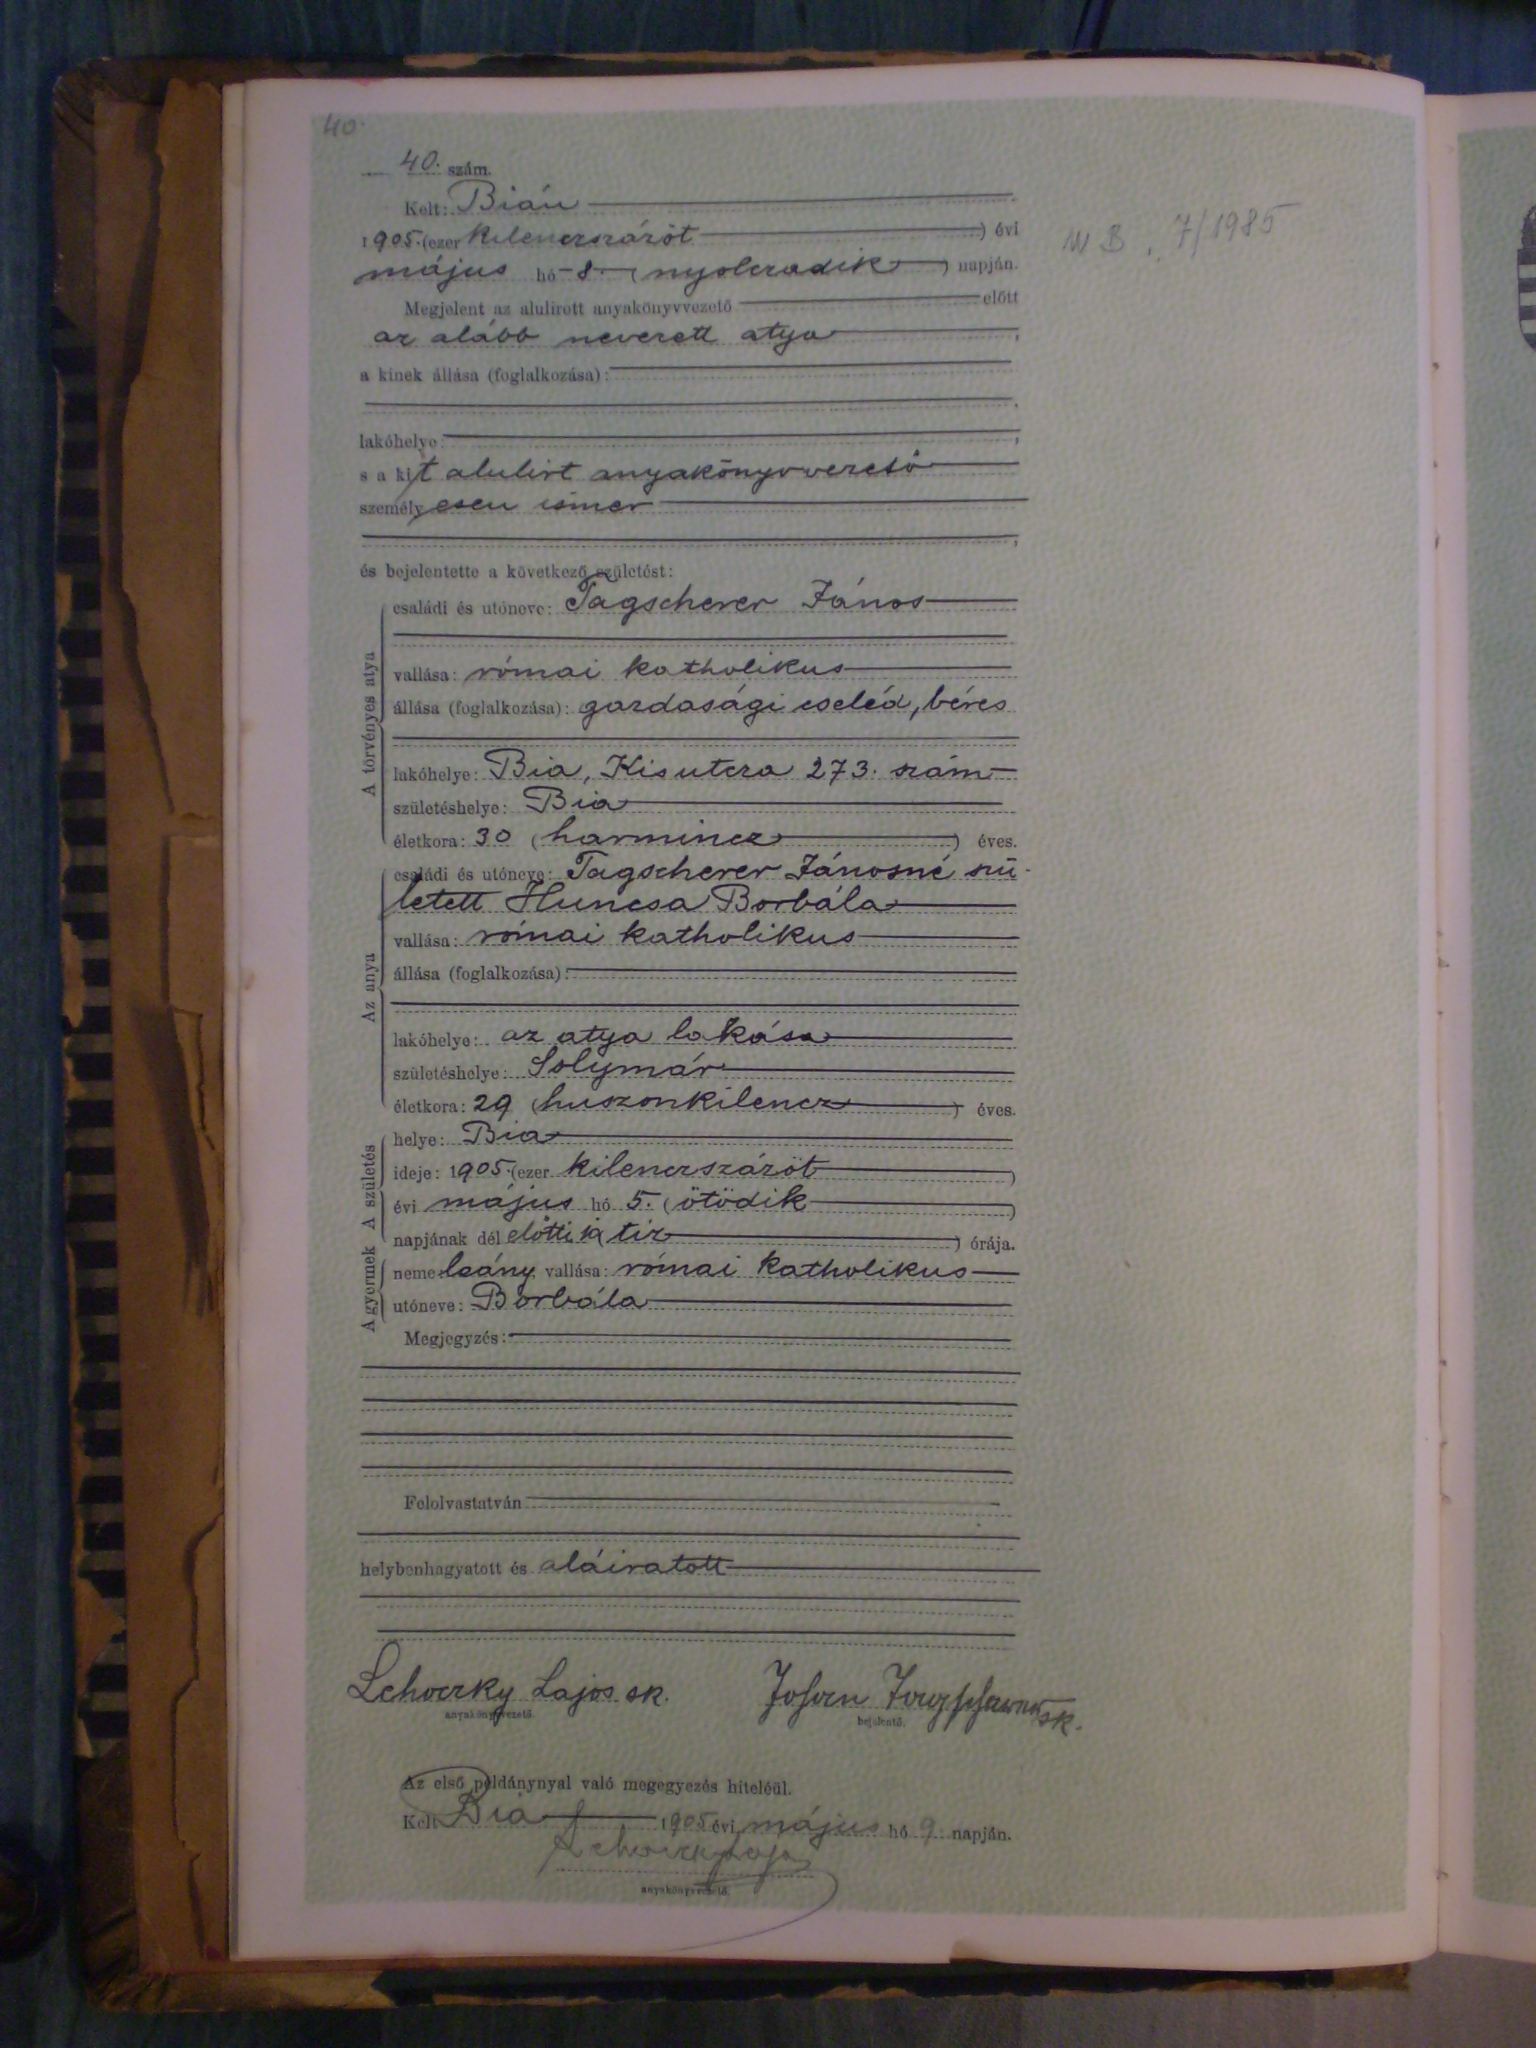 40.
40. szám.
Kelt: Bián
1905. (ezer kilenczszázöt) évi
május hó 8 (nyolczadik) napján.
Megjelent az alulirott anyakönyvvezető előtt
az alább nevezett atya,
a kinek állása (foglalkozása):
lakóhelye:
s a kit alulirt anyakönyvvezető
személyesen ismer
és bejelentette a következő születést:
A törvényes atya
családi és utóneve: Tagscherer János
vallása: római katholikus
állása (foglalkozása): gazdasági cseléd, béres
lakóhelye: Bia, Kis utcza 273. szám
születéshelye: Bia
életkora: 30 (harmincz) éves.
Az anya
családi és utóneve: Tagscherer Jánosné szü-
letett Huncsa Borbála
vallása: római katholikus
állása (foglalkozása):
lakóhelye: az atya lakása
születéshelye: Solymár
életkora: 29 (huszonkilencz) éves.
A születés
helye: Bia
ideje: 1905. (ezer kilenczszázöt)
évi május hó 5. (ötödik)
napjának dél előtti 10 (tiz) órája.
A gyermek
neme: leány, vallása: római katholikus
utóneve: Borbála
Megjegyzés:
Felolvastatván
helybenhagyatott és aláiratott
Lehoczky Lajos sk.
anyakönyvvezető.
Johan Tagscherer sk.
bejelentő.
Az első példánynyal való megegyezés hiteléül.
Kelt Bia 1905 évi május hó 9 napján.
Lehoczky Lajos
anyakönyvvezető.
7/1985